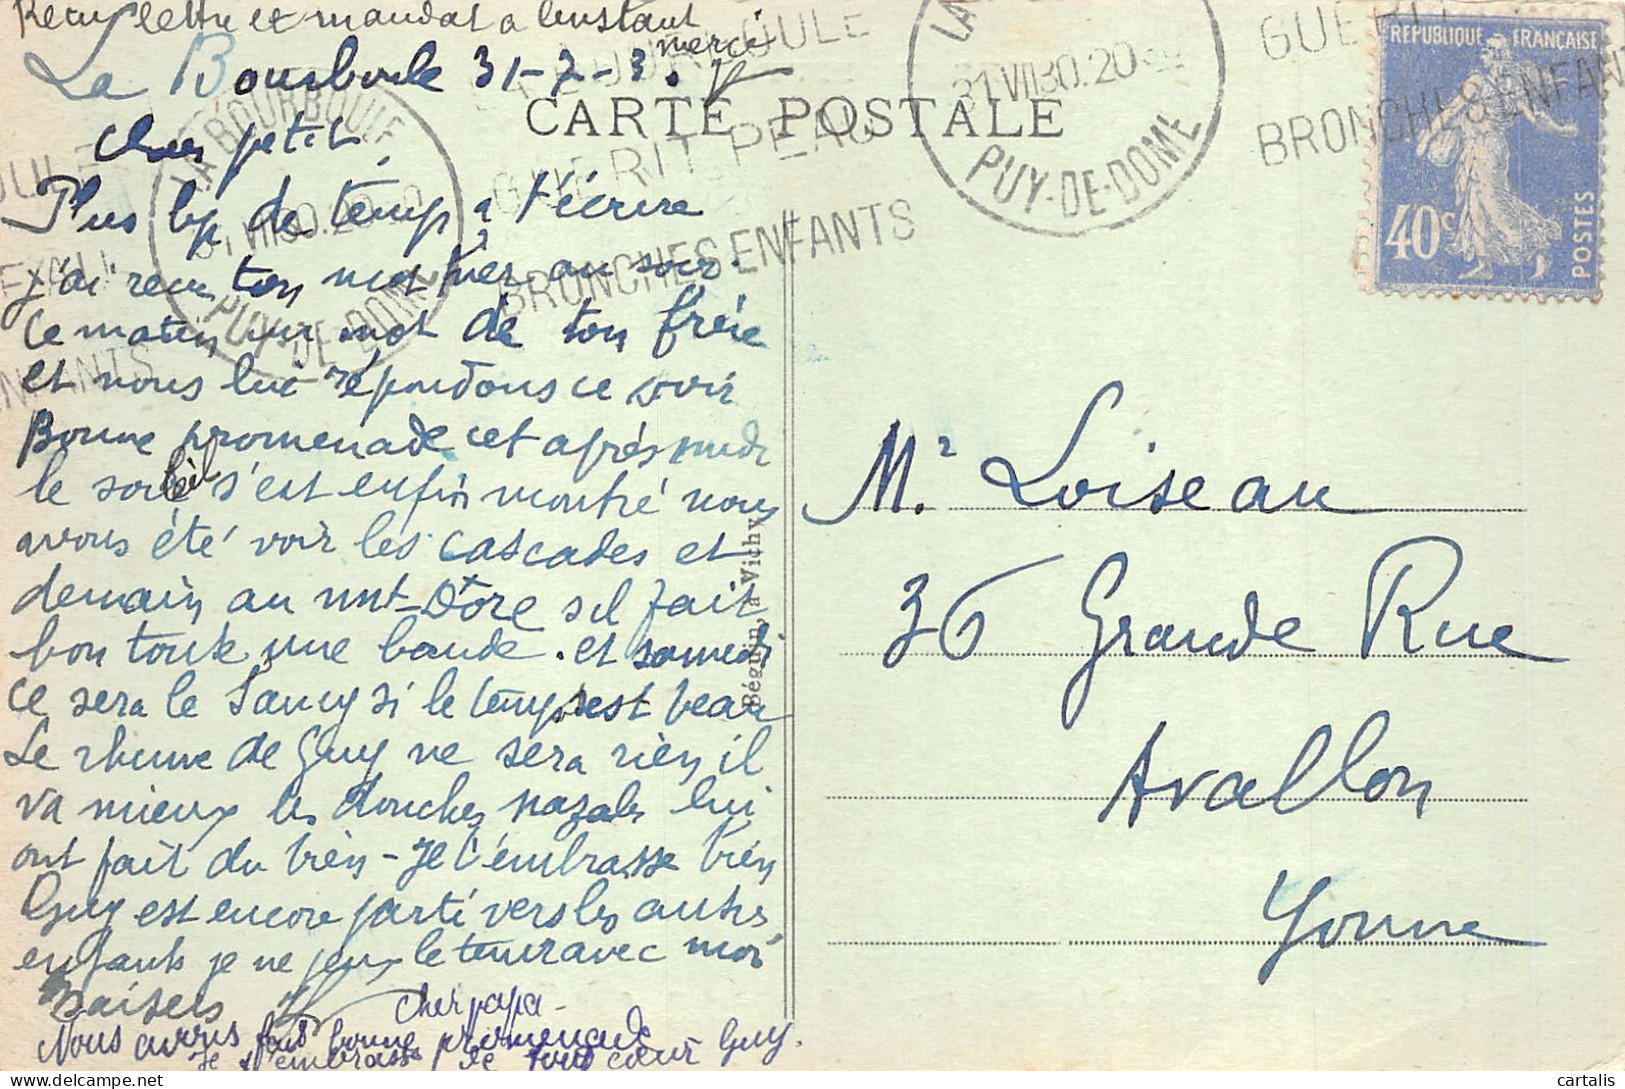 Reçu lettre et mandat à l'instant
merci
La Bourboule 31-7-3.
CARTE POSTALE
Cher petit,
Plus de temps à t'écrire
j'ai reçu ton mot hier au soir.
Ce matin un mot de ton frère
et nous lui répondons ce soir
Bonne promenade cet après midi
le soleil s'est enfin montré nous
avons été voir les cascades et
demain au mnt-Dore s'il fait
bon toute une bande. et samedi
ce sera le Sancy si le temps est beau
Le rhume de Guy ne sera rien il
va mieux les douches nazales lui
ont fait du bien - Je t'embrasse bien
Guy est encore parti vers les autres
enfants je ne peux le tenir avec moi
Baisers
Cher papa -
Nous avons fait bonne promenade
Je t'embrasse de tout cœur Guy.
LA BOURBOULE
31 VII 30. 20
PUY-DE-DOME
BOURBOULE
GUERIT PEAU
BRONCHES ENFANTS
LA
31 VII 30. 20
PUY-DE-DOME
GUERIT
BRONCHES ENFANT
REPUBLIQUE FRANÇAISE
40c
POSTES
Béguin, à Vichy
Mr. Loiseau
36 Grande Rue
Avallon
Yonne
cartalis